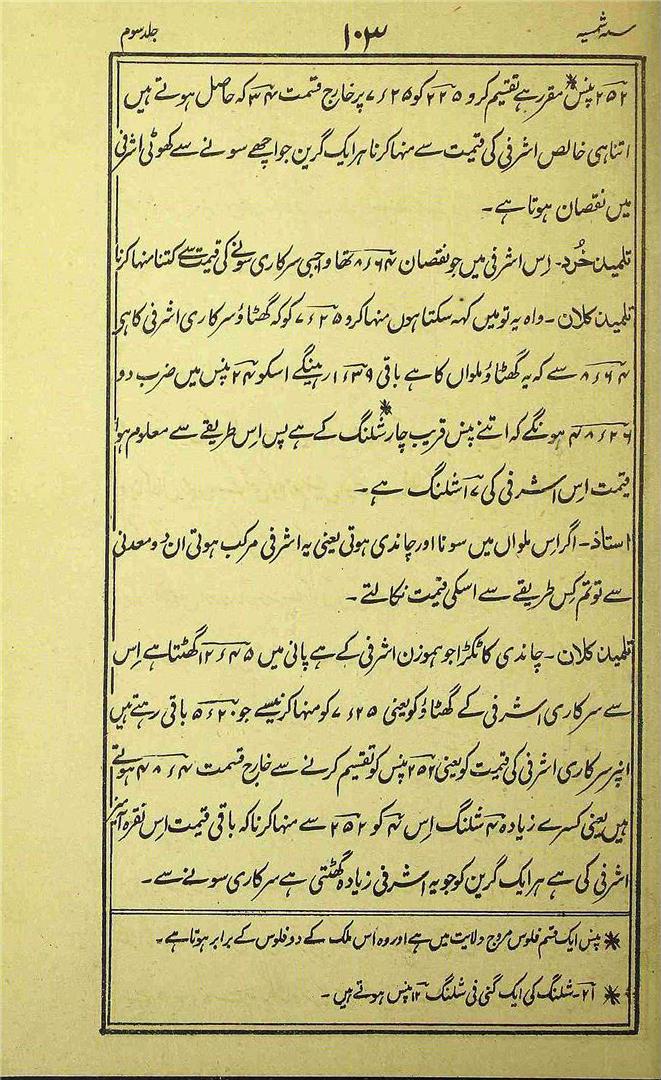 ستہ شمسیہ ۱۰۳ جلد سوم
۲۵۲ پنس* مقرر ہے تقسیم کرو ۲۲۵ کو ۷٫۲۵ پر خارج قسمت ۳۴ کہ حاصل ہوتے ہیں
اتنا ہی خالص اشرفی کی قیمت سے منہا کرنا ہر ایک گرین جو اچھے سونے سے کھوٹی اشرفی
میں نقصان ہوتا ہے۔
تلمیذ خُرد۔ اِس اشرفی میں جو نقصان ۸٫۶۴ تھا واجبی سرکاری سونے کی قیمت سے کتنا منہا کرنا
تلمیذ کلان۔ واہ یہ تو میں کہہ سکتا ہوں منہا کرو ۷٫۲۵ کو کہ گھٹاؤ سرکاری اشرفی کا ہی
۸٫۶۴ سے کہ یہ گھٹاؤ ملواں کا ہے باقی ۱٫۳۹ رہینگے اسکو ۳۴ پنس میں ضرب دو
۴۸٫۲۶ ہونگے کہ اتنے پنس قریب چار شلنگ* کے ہے پس اِس طریقے سے معلوم ہوا
قیمت اِس اشرفی کی ۱۷ شلنگ ہے۔
استاذ۔ اگر اِس ملواں میں سونا اور چاندی ہوتی یعنی یہ اشرفی مرکب ہوتی ان دو معدنی
سے تو تم کِس طریقے سے اسکی قیمت نکالتے۔
تلمیذ کلان۔ چاندی کا ٹکڑا جو ہموزن اشرفی کے ہے پانی میں ۱۲٫۴۵ گھٹتا ہے اِس
سے سرکاری اشرفی کے گھٹاؤ کو یعنی ۷٫۲۵ کو منہا کرنیسے جو ۵٫۲۰ باقی رہتے ہیں
اُنپر سرکاری اشرفی کی قیمت کو یعنی ۲۵۲ پنس کو تقسیم کرنے سے خارج قسمت ۴۸٫۴ ہوتے
ہیں یعنی کسرے زیادہ ۴ شلنگ اِس ۴ کو ۲۵۲ سے منہا کرنا کہ باقی قیمت اِس نقرہ آمیز
اشرفی کی ہے ہر ایک گرین کو جو یہ اشرفی زیادہ گھٹتی ہے سرکاری سونے سے۔
* پنس ایک قسم فلوس مروج ولایت میں ہے اور وہ اس ملک کے دو فلوس کے برابر ہوتا ہے۔
* ۲۱۔ شلنگ کی ایک گنی فی شلنگ ۱۲ پنس ہوتے ہیں۔